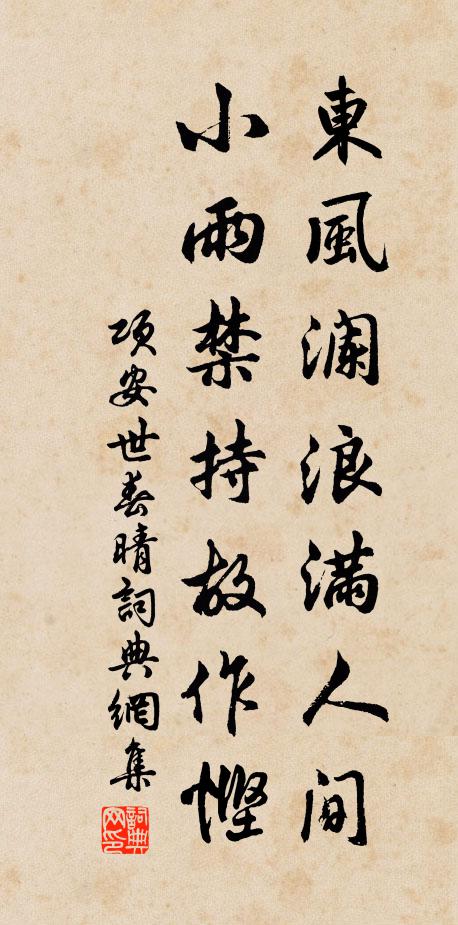 東風瀾浪滿人間
小雨禁持故作慳
项安世春晴詞典網集
詞典網印